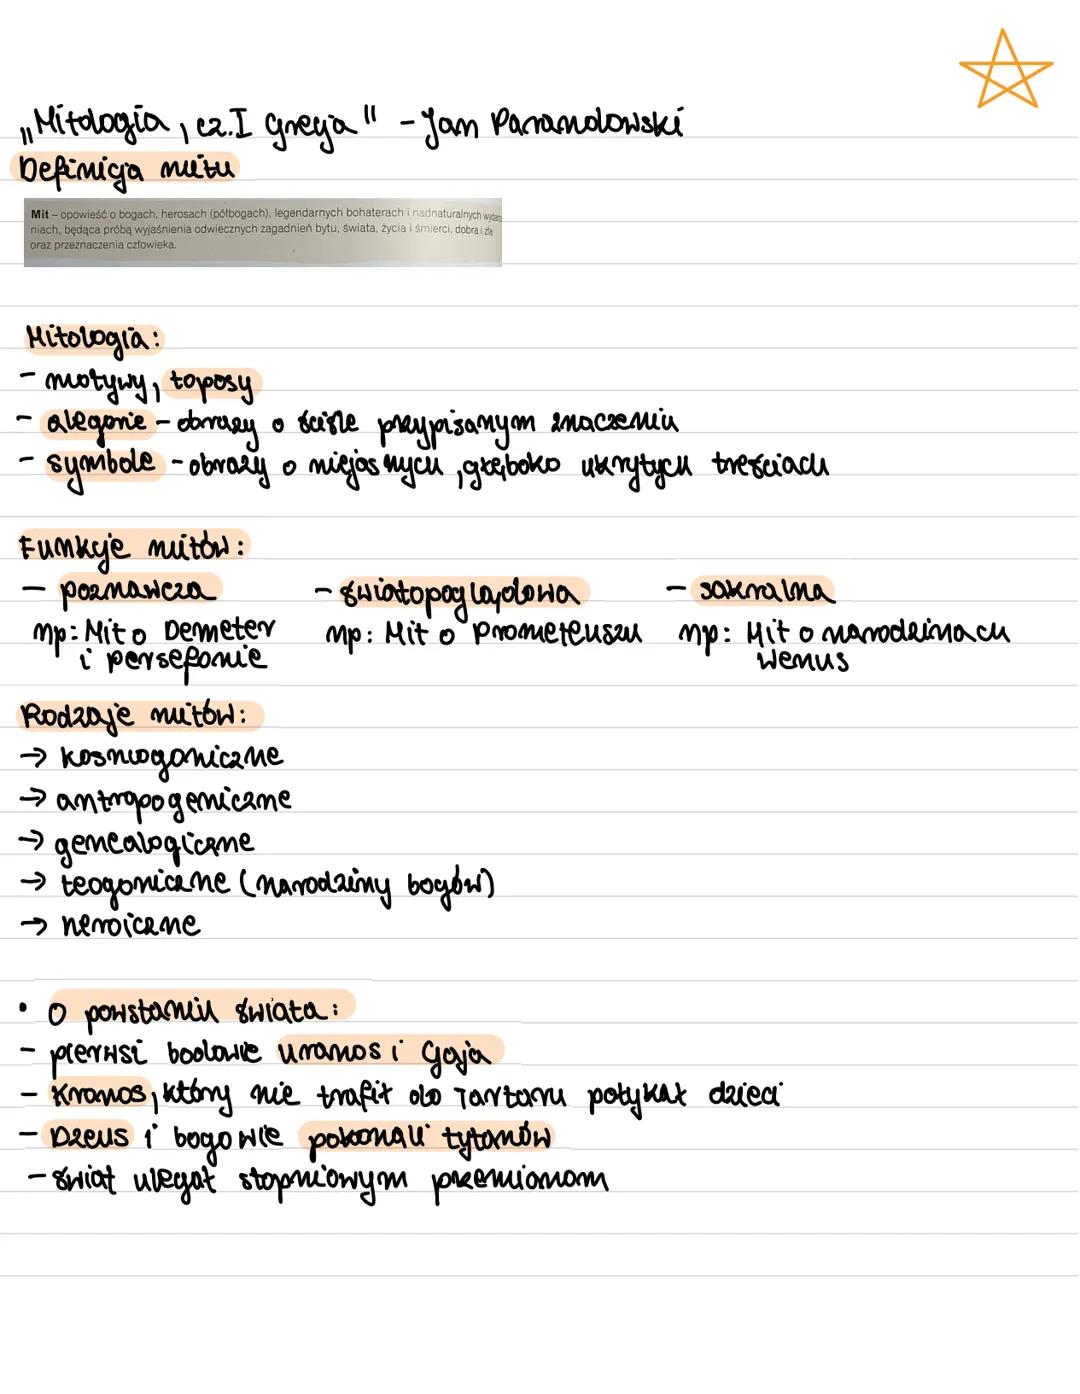 „Mitologia, cz.I Grecja" - Jan Parandowski
Definicja mitu
Mit – opowieść o bogach, herosach (półbogach), legendarnych bohaterach i nadnaturalnych wydarze
niach, będąca próbą wyjaśnienia odwiecznych zagadnień bytu, świata, życia i śmierci, dobra i zła
oraz przeznaczenia człowieka.
Mitologia:
- motywy, toposy
- alegorie - obrazy o ściśle przypisanym znaczeniu
- symbole - obrazy o niejasnych, głęboko ukrytych treściach
Funkcje mitów:
- poznawcza - światopoglądowa - sakralna
np: Mit o Demeter np: Mit o Prometeuszu np: Mit o narodzinach
i persefonie Wenus
Rodzaje mitów:
→ kosmogoniczne
→ antropogeniczne
→ genealogiczne
→ teogoniczne (narodziny bogów)
→ heroiczne
• O powstaniu świata:
- pierwsi bogowie Uranos i Gaja
- Kronos, który nie trafił do Tartaru połykał dzieci
- Dzeus i bogowie pokonali tytanów
- świat ulegał stopniowym przemianom